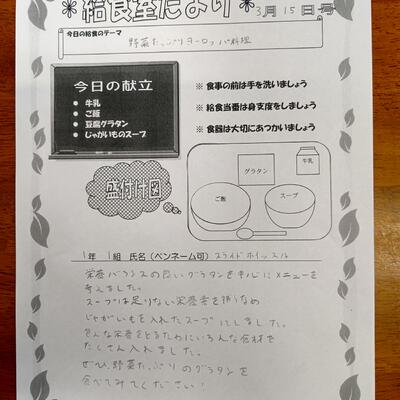 ＊給食室だより＊ 3月15日号
今日の給食のテーマ
野菜たっぷりヨーロッパ料理
今日の献立
● 牛乳
● ご飯
● 豆腐グラタン
● じゃがいものスープ
※ 食事の前は手を洗いましょう
※ 給食当番は身支度をしましょう
※ 食器は大切にあつかいましょう
盛付け図
グラタン
牛乳
ご飯
スープ
1年 1組 氏名（ペンネーム可）スライドホイッスル
栄養バランスの良いグラタンを中心にメニューを
考えました。
スープは足りない栄養素を補うため
じゃがいもを入れたスープにしました。
色んな栄養をとるためにいろんな食材を
たくさん入れました。
ぜひ、野菜たっぷりのグラタンを
食べてみてください！